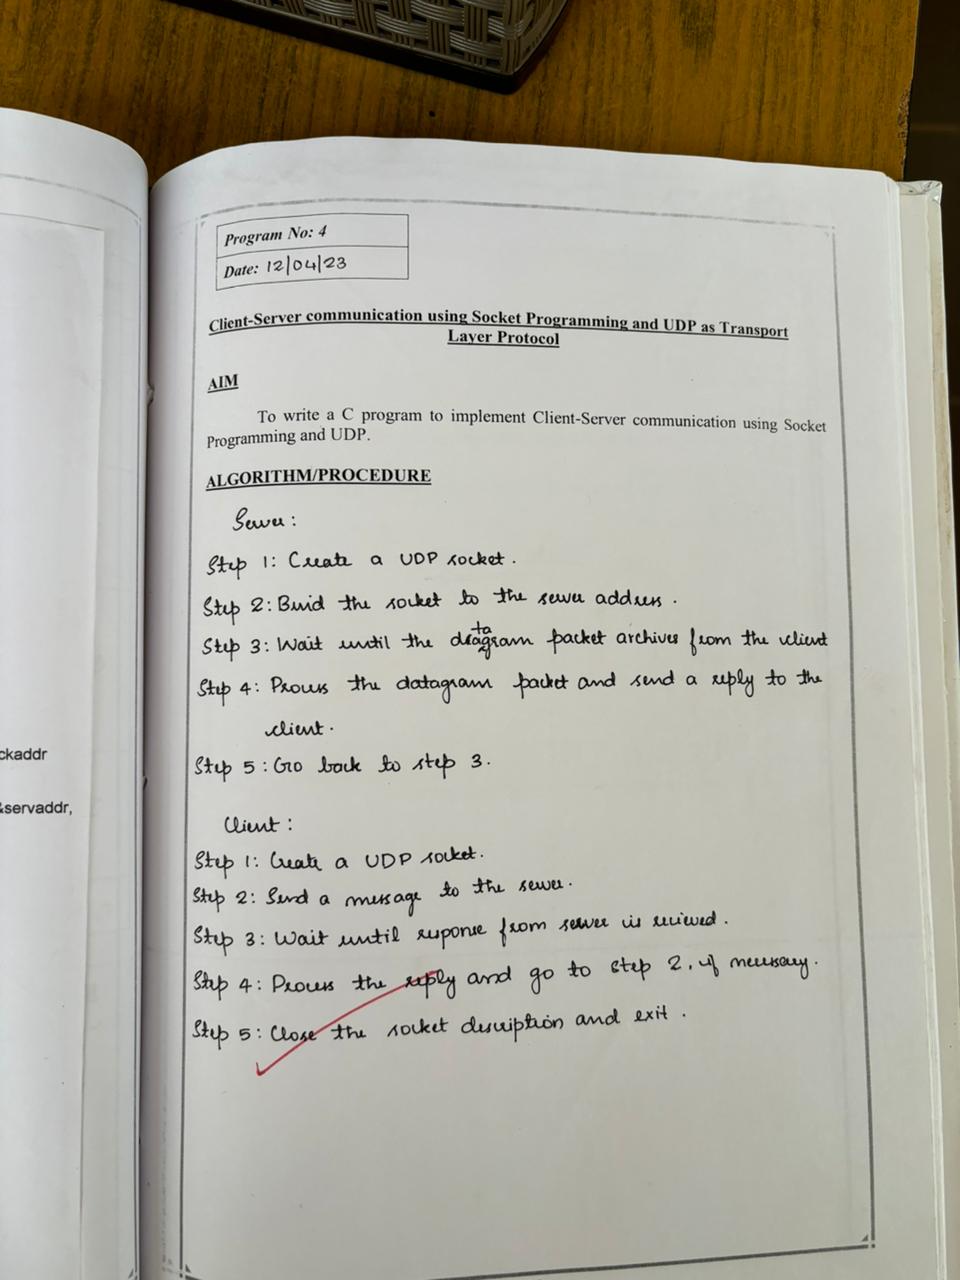 ckaddr
&servaddr,
Program No: 4
Date: 12/04/23
Client-Server communication using Socket Programming and UDP as Transport
Layer Protocol
AIM
To write a C program to implement Client-Server communication using Socket
Programming and UDP.
ALGORITHM/PROCEDURE
Server:
Step 1: Create a UDP socket.
Step 2: Bind the socket to the server address.
Step 3: Wait until the datagram packet archives from the client
Step 4: Process the datagram packet and send a reply to the
client.
Step 5: Go back to step 3.
Client:
Step 1: Create a UDP socket.
Step 2: Send a message to the server.
Step 3: Wait until response from server is recieved.
Step 4: Process the reply and go to step 2, if necessary.
Step 5: Close the socket description and exit.